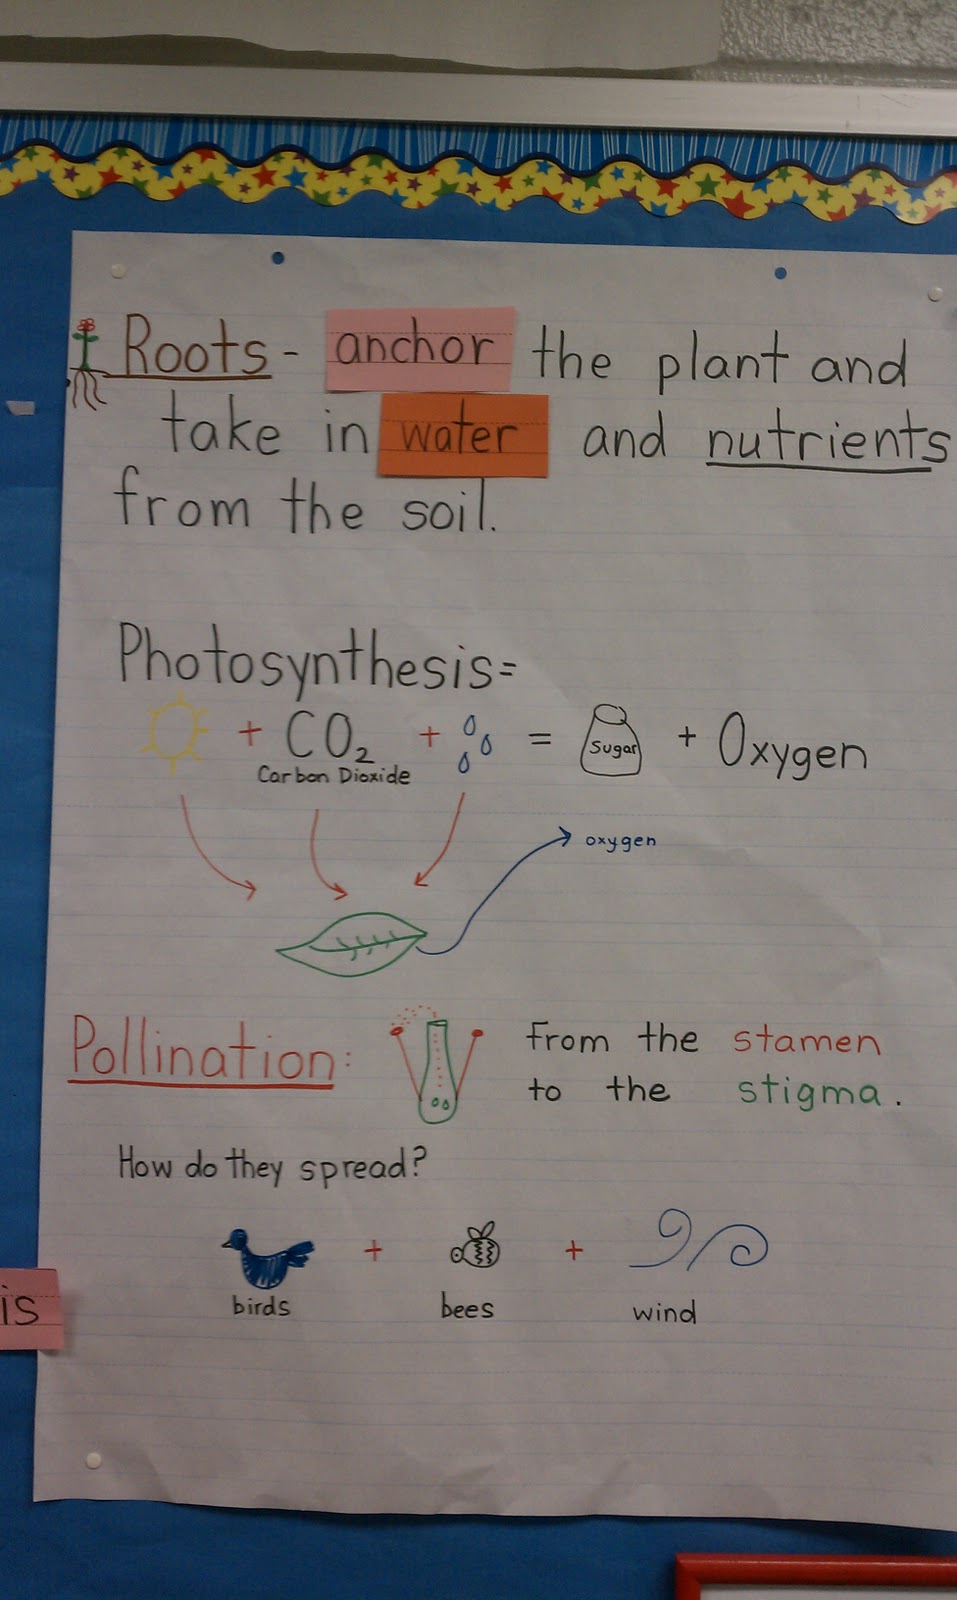 Roots - anchor the plant and
take in water and nutrients
from the soil.
Photosynthesis=
+ CO₂ + = Sugar + Oxygen
Carbon Dioxide
oxygen
Pollination: from the stamen
to the stigma.
How do they spread?
+ +
birds bees wind
is